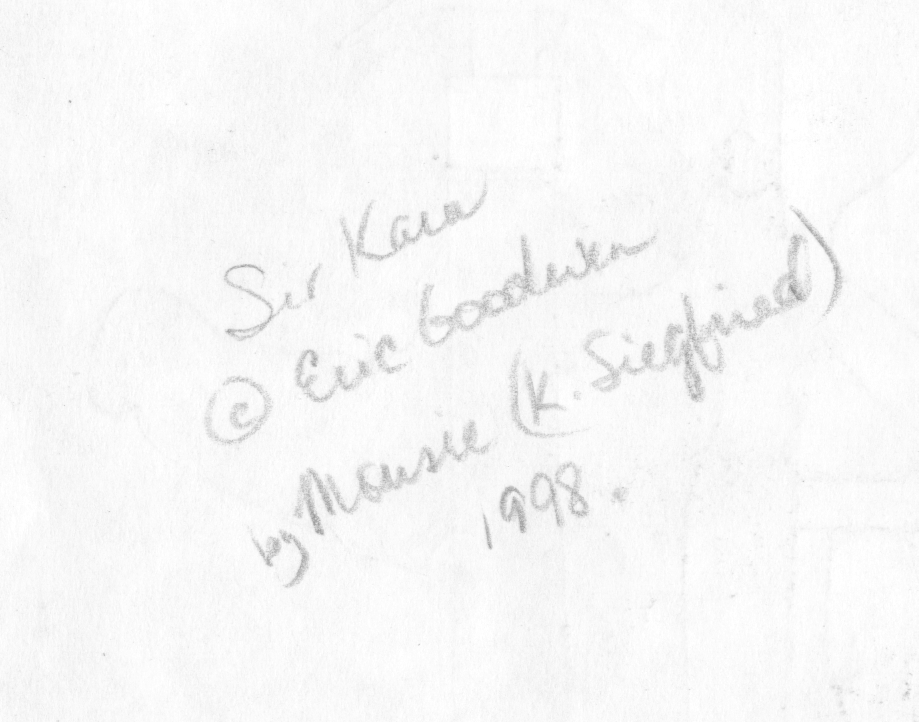 Sir Kara
© Eric Goodwin
by Mousie (K. Siegfried)
1998.